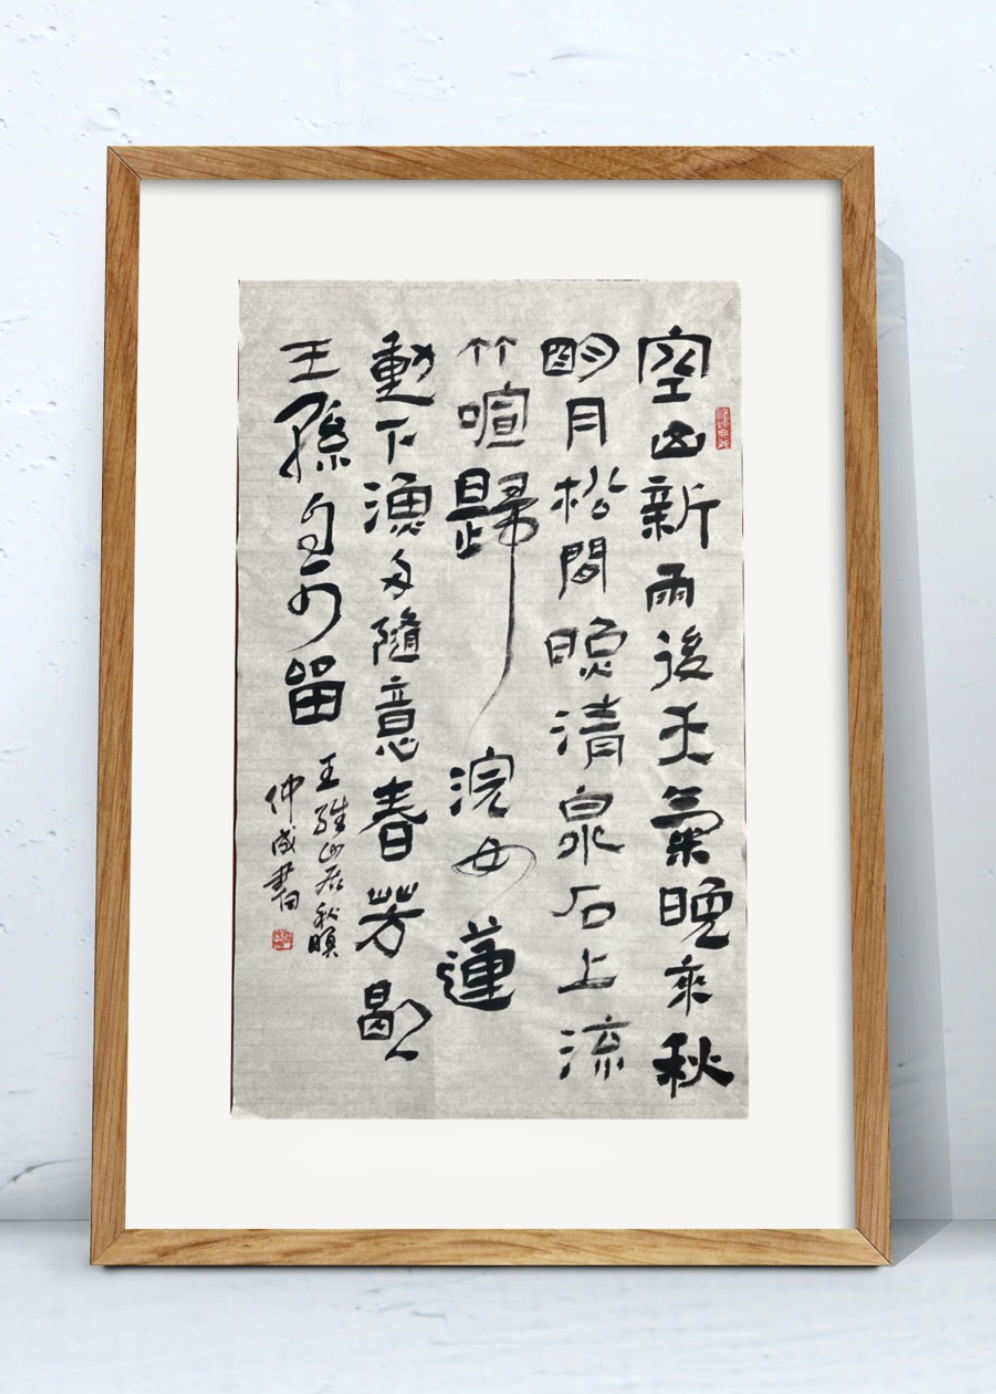 空山新雨後天氣晚來秋
明月松間照清泉石上流
竹喧歸浣女蓮
動下漁舟隨意春芳歇
王孫自可留
王維山居秋暝
仲書